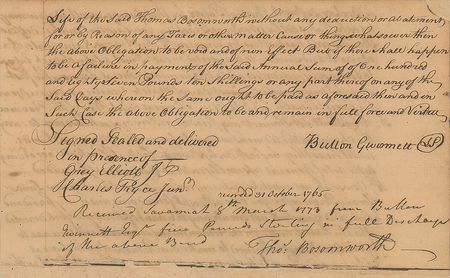 Life of the Said Thomas Bosomworth without any deduction or Abatement
for or by Reason of any Taxes or other matter Cause or thing whatsoever then
the above Obligation to be void and of non Effect But if there shall happen
to be a failure in payment of the said Annual Sum of of One hundred
and Eighty seven Pounds ten Shillings or any part thereof on any of the
Said Days whereon the Same ought to be paid as aforesaid then and in
Such Case the above Obligation to be and remain in full force and Virtue
Signed Sealed and delivered
in presence of
Button Gwinnett LS
Grey Elliott J P
Charles Pryce Junr.
recorded 31 October 1765
Received Savannah 8th March 1773 from Button
Gwinnett Esqr. five Pounds Sterling in full Discharge
of the above Bond
Thos. Bosomworth